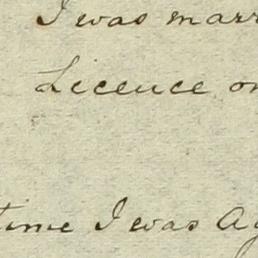 I was marr
Licence on
time I was Ag